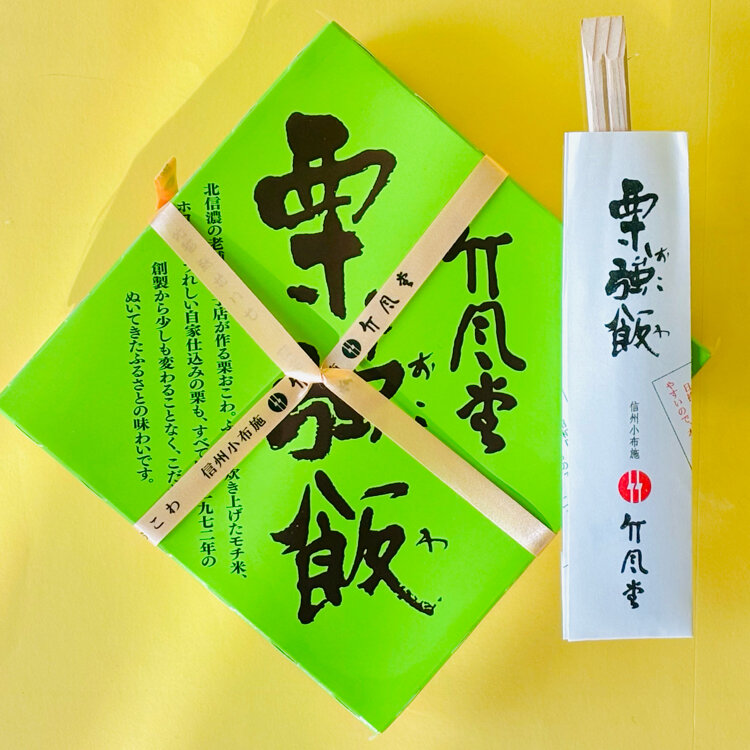 竹風堂
栗強飯
おこわ
北信濃の老
店が作る栗おこわ。ふ
炊き上げたモチ米、
ホ
うれしい自家仕込みの栗も、すべて
九七二年の
創製から少しも変わることなく、こだ
ぬいてきたふるさとの味わいです。
信州小布施
竹風堂
竹風堂
こわ
栗強飯
おこわ
信州小布施
竹風堂
やすいので、